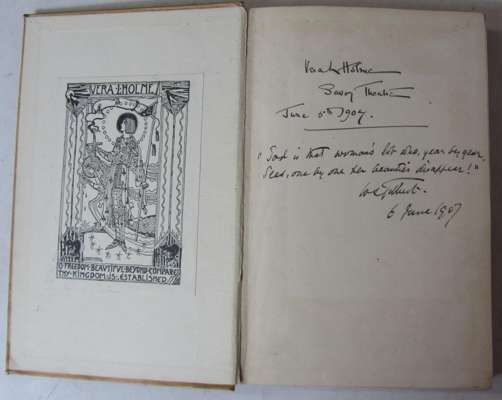 VERA·L·HOLME
O·FREEDOM·BEAVTIFVL·BEYOND·COMPARE
THY·KINGDOM·IS·ESTABLISHED
Vera L Holme
Savoy Theatre
June 5th 1907.
"Sad is that woman's lot who, year by year,
Sees, one by one her beauties disappear!"
WSGilbert.
6 June 1907